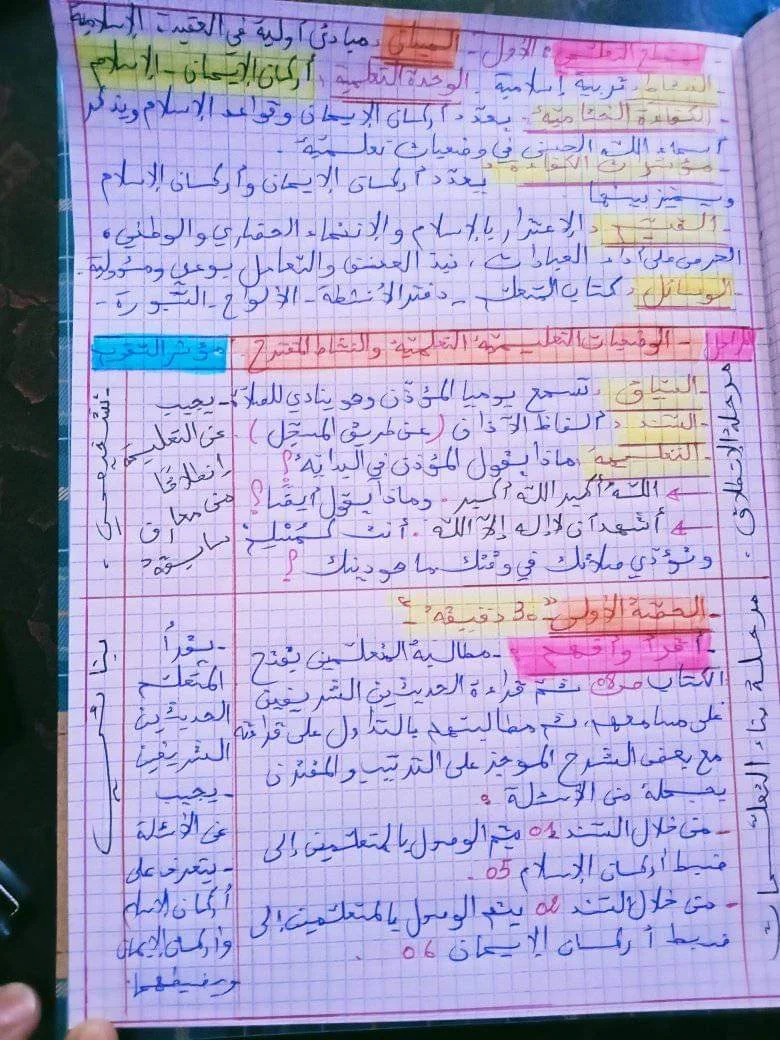 المقطع التعلمي: الأول - الميدان: مبادئ أولية في العقيدة الإسلامية
النشاط: تربية إسلامية - الوحدة التعلمية: أركان الإيمان - الإسلام
الكفاءة الختامية: يعدّد أركان الإيمان وقواعد الإسلام ويذكر
أسماء الله الحسنى في وضعيات تعلمية.
مؤشرات الكفاءة: يعدّد أركان الإيمان وأركان الإسلام
ويميز بينها
القيم: الإعتزاز بالإسلام والإنتماء الحضاري والوطني،
الحرص على أداء العبادات، نبذ العنف والتعامل بوعي ومسؤولية.
الوسائل: كتاب المتعلم - دفتر الأنشطة - الألواح - السّبورة -
المراحل - الوضعيات التعليمية التعلمية والنشاط المقترح - مؤشر التقويم
مرحلة الإنطلاق.
السياق: تسمع يوميا المؤذن وهو ينادي للصلاة
السّند: ألفاظ الآذان (عن طريق المسجّل)
التعليمة: ماذا يقول المؤذن في البداية؟
← الله أكبر الله أكبر. وماذا يقول أيضًا؟
← أشهد أن لا إله إلاّ الله. أنت كمُسْلِم
وتؤدي صلاتك في وقتك ما هو دينك؟
- يجيب
عن التعليمة
إنطلاقًا
من معارف
سابقة
تشخيصي
مرحلة بناء التعلمات
الحصّة الأولى "30 دقيقة"
- أقرأ وأفهم: - مطالبة المتعلمين بفتح
الكتاب ص08 ثمّ قراءة الحديثين الشريفين
على مسامعهم، ثم مطالبتهم بالتداول على قراءته
مع بعض الشرح الموجز على الترتيب والمقترن
بجملة من الأسئلة:
- من خلال السّند 01 يتم الوصول بالمتعلّمين إلى
ضبط أركان الإسلام 05.
- من خلال السند 02 يتم الوصول بالمتعلمين إلى
ضبط أركان الإيمان 06.
- يقرأ
المتعلم
الحديثين
الشريفين
- يجيب
عن الأسئلة
- يتعرف على
أركان الإسلام
وأركان الإيمان